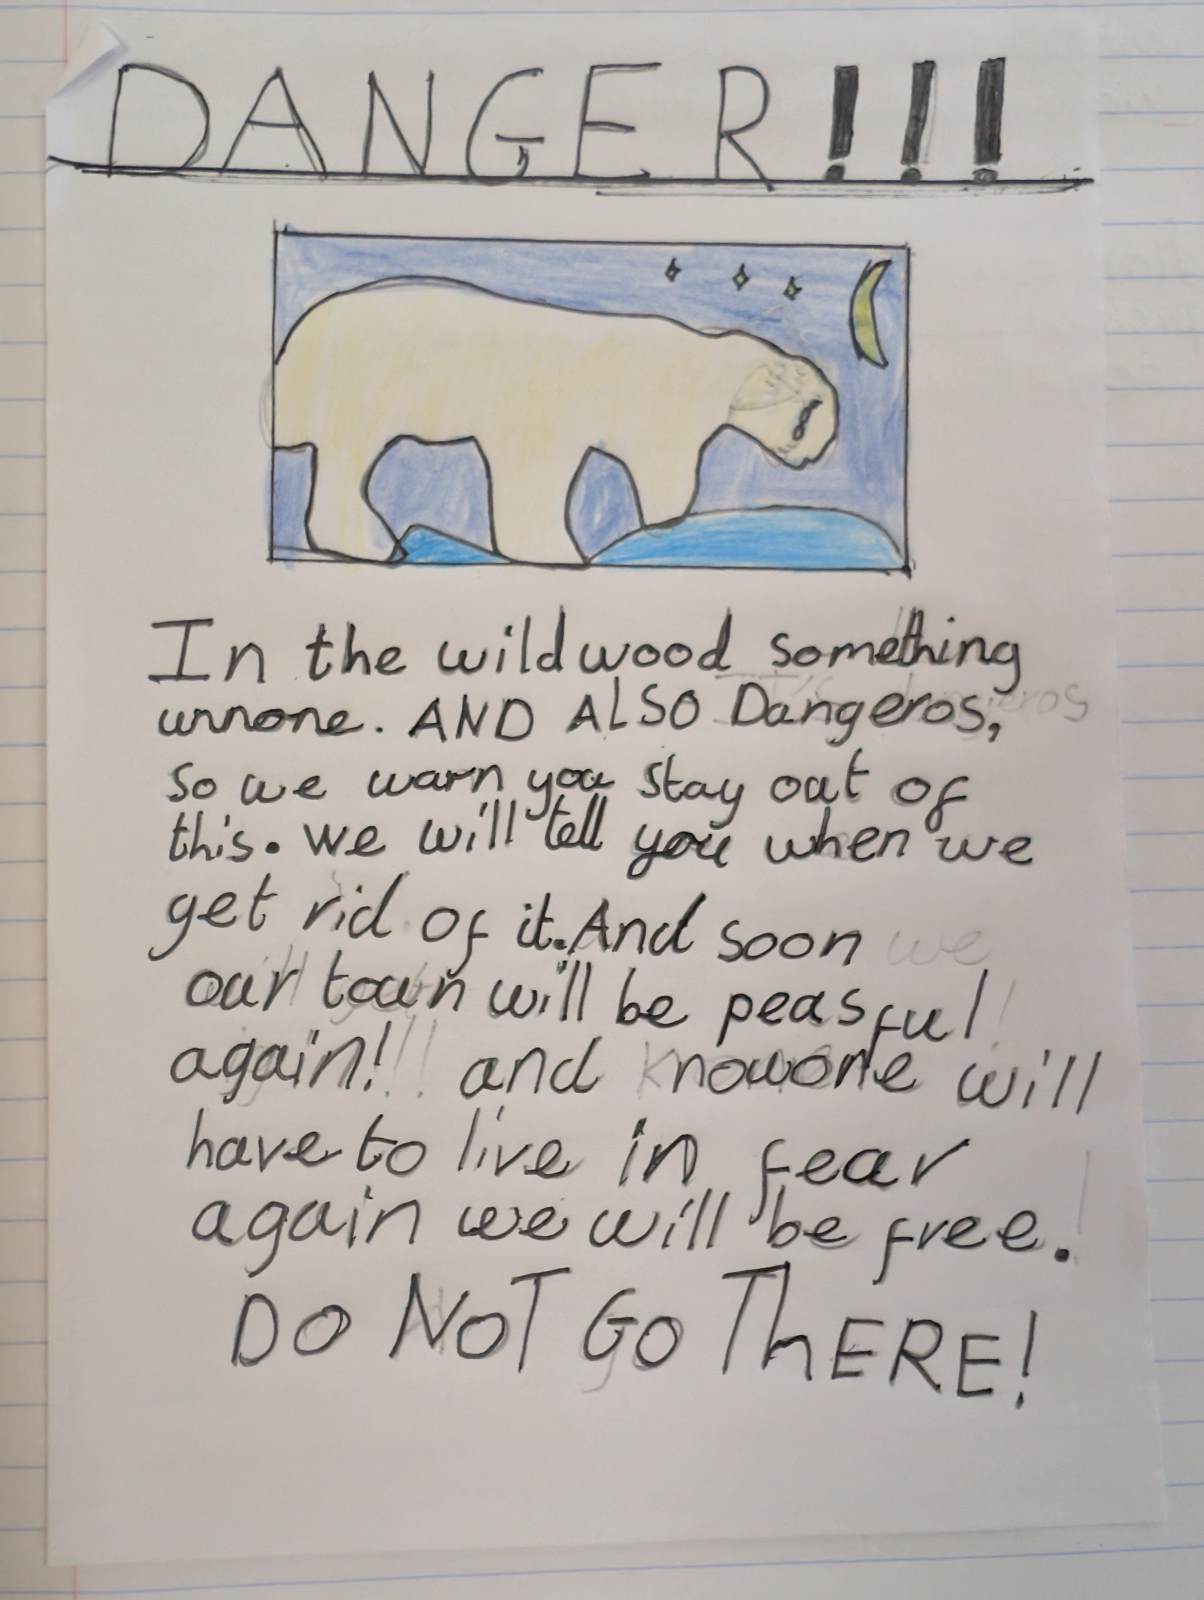 DANGER!!!
In the wildwood something
unnone. AND ALSO Dangeros,
so we warn you stay out of
this. we will tell you when we
get rid of it. And soon
our town will be peasful
again! and nowone will
have to live in fear
again we will be free.
DO NOT GO ThERE!